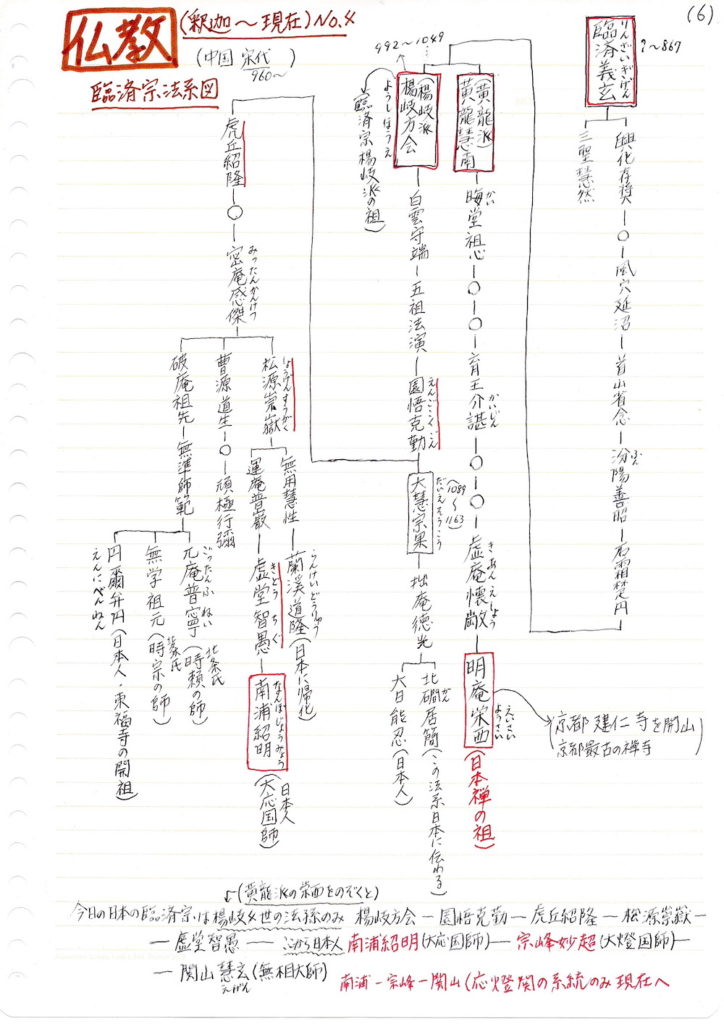 (6)
仏教 (釈迦〜現在) No.4
(中国 宋代)
960〜
臨済宗法系図
臨済義玄 りんざいぎげん ?〜867
三聖慧然
興化存奨 ― ○ ― 風穴延沼 ― 首山省念 ― 汾陽善昭 ― 石霜楚円
ふん
(黄龍派) 黄龍慧南 ― 晦堂祖心 ― ○ ― ○ ― 育王介諶 ― ○ ― ○ ― 虚庵懐敞 ― 明庵栄西 (日本禅の祖)
かい
かいじん
きあんえしょう
えいさい
ようさい
京都 建仁寺を開山
(京都最古の禅寺
992〜1049
(楊岐派) 楊岐方会 ― 白雲守端 ― 五祖法演 ― 圜悟克勤
ようぎほうえ
えんごこくごん
(臨済宗楊岐派の祖)
大慧宗杲 ― 拙庵徳光
だいえそうこう
(1089〜1163)
北磵居簡 (この法系日本に伝わる)
かん
大日能忍 (日本人)
虎丘紹隆 ― ○ ― 密庵咸傑
みったんかんけつ
松源崇嶽
しょうげんすうがく
無用慧性 ― 蘭渓道隆 (日本に帰化)
らんけいどうりゅう
運庵普巌 ― 虚堂智愚 ― 南浦紹明 (大応国師)
きどうちぐ
なんぽじょうみょう
日本人
曹源道生 ― ○ ― 頑極行彌
破庵祖先 ― 無準師範
兀庵普寧 (時頼の師)
ごったんふねい
北条氏
無学祖元 (時宗の師)
北条氏
円爾弁円 (日本人・東福寺の開祖)
えんにべんねん
(黄龍派の栄西をのぞくと)
今日の日本の臨済宗は楊岐4世の法孫のみ 楊岐方会 ― 圜悟克勤 ― 虎丘紹隆 ― 松源崇嶽 ―
― 虚堂智愚 ― ここから日本人 南浦紹明(大応国師) ― 宗峰妙超(大燈国師) ―
― 関山慧玄(無相大師) 南浦 ― 宗峰 ― 関山 (応燈関の系統のみ現在へ
えげん